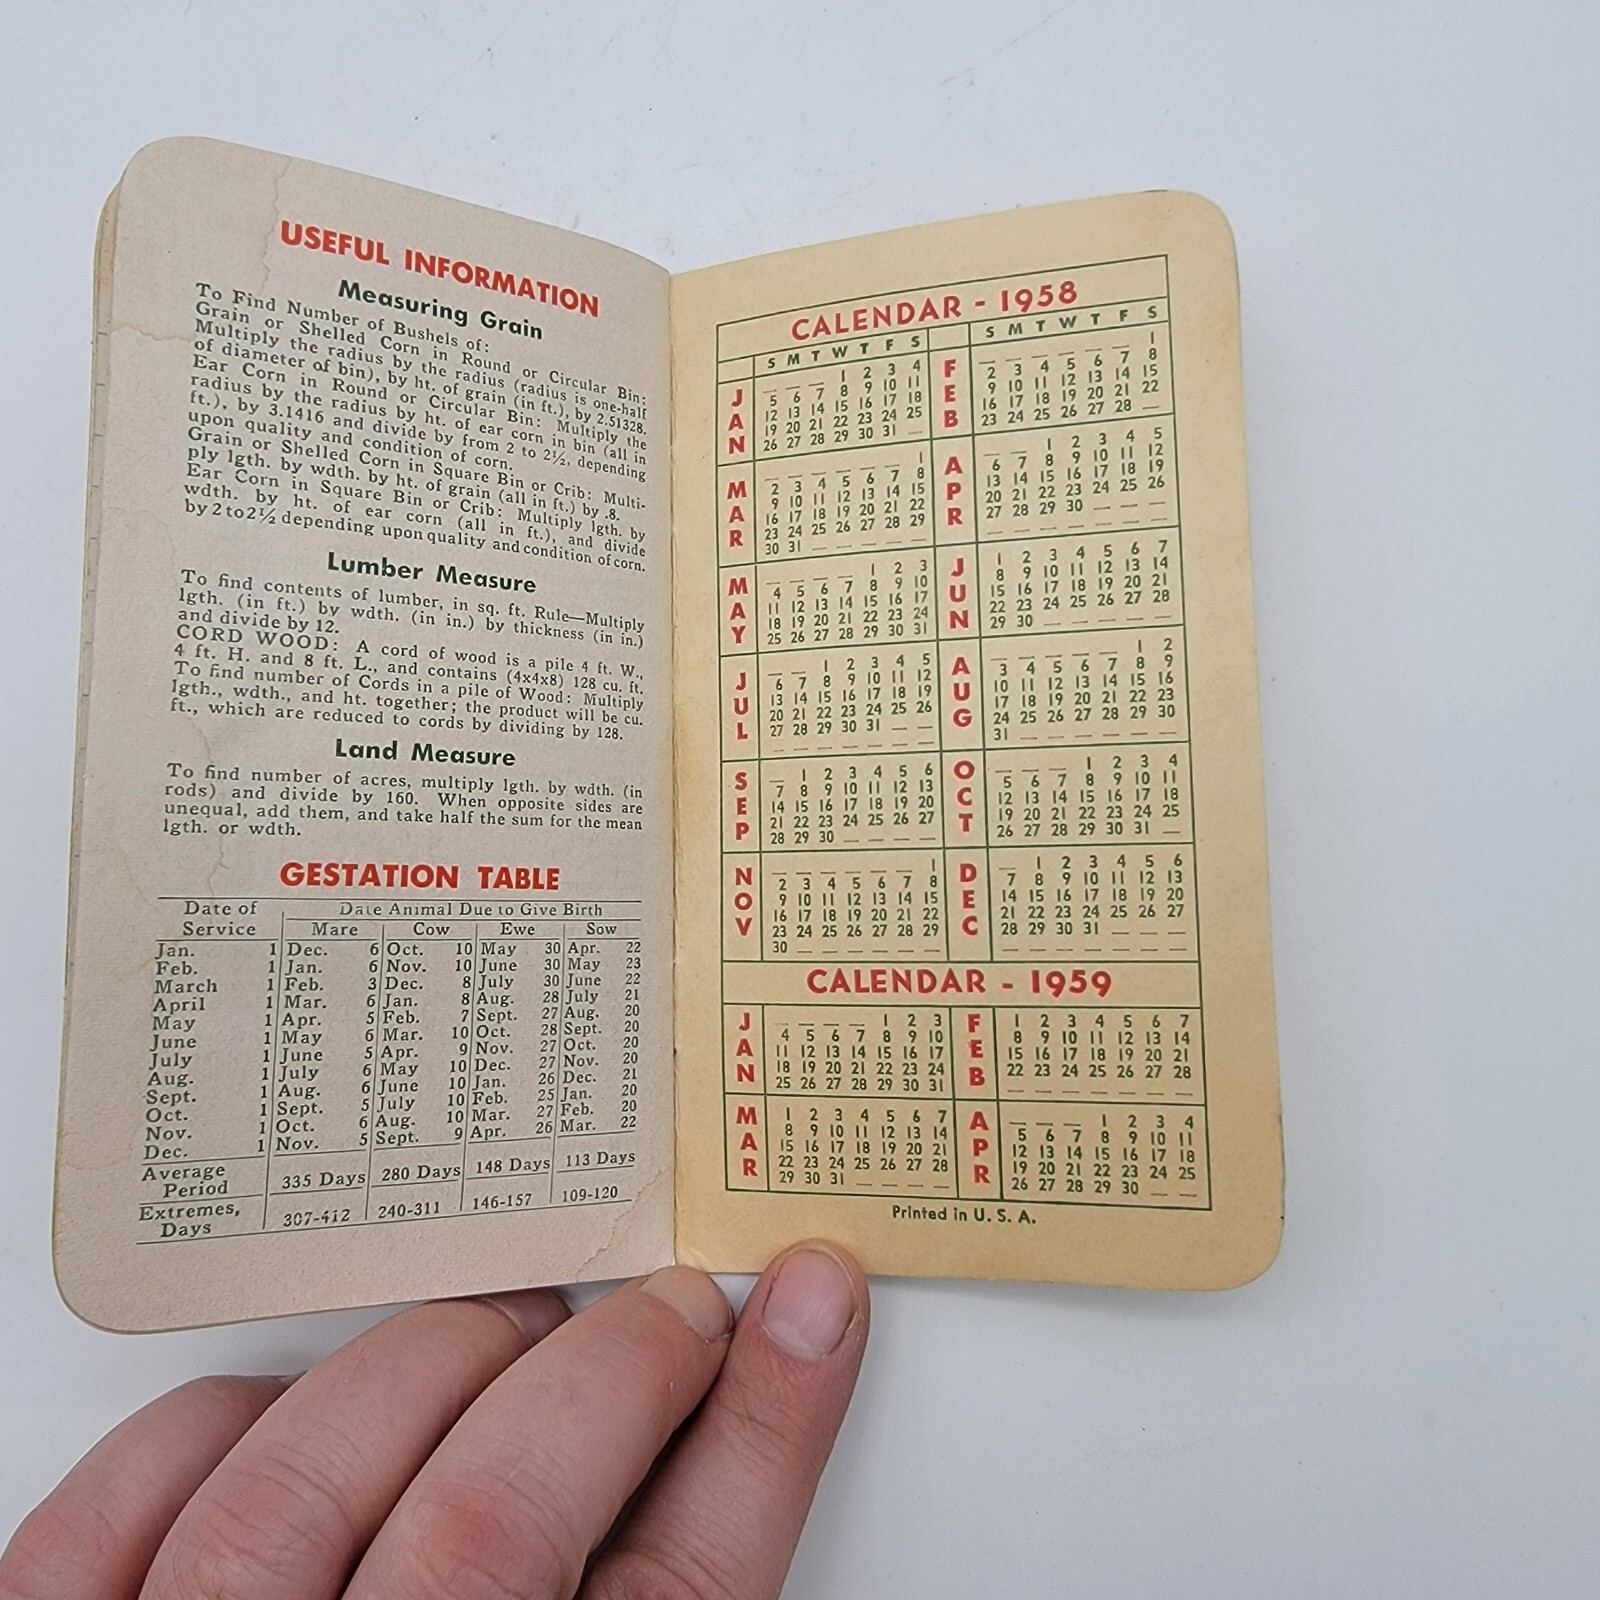 USEFUL INFORMATION
Measuring Grain
To Find Number of Bushels of:
Grain or Shelled Corn in Round or Circular Bin:
Multiply the radius by the radius (radius is one-half
of diameter of bin), by ht. of grain (in ft.), by 2.51328.
Ear Corn in Round or Circular Bin: Multiply the
radius by the radius by ht. of ear corn in bin (all in
ft.), by 3.1416 and divide by from 2 to 2½, depending
upon quality and condition of corn.
Grain or Shelled Corn in Square Bin or Crib: Multi-
ply lgth. by wdth. by ht. of grain (all in ft.) by .8.
Ear Corn in Square Bin or Crib: Multiply lgth. by
wdth. by ht. of ear corn (all in ft.), and divide
by 2 to 2½ depending upon quality and condition of corn.
Lumber Measure
To find contents of lumber, in sq. ft. Rule—Multiply
lgth. (in ft.) by wdth. (in in.) by thickness (in in.)
and divide by 12.
CORD WOOD: A cord of wood is a pile 4 ft. W.,
4 ft. H. and 8 ft. L., and contains (4x4x8) 128 cu. ft.
To find number of Cords in a pile of Wood: Multiply
lgth., wdth., and ht. together; the product will be cu.
ft., which are reduced to cords by dividing by 128.
Land Measure
To find number of acres, multiply lgth. by wdth. (in
rods) and divide by 160. When opposite sides are
unequal, add them, and take half the sum for the mean
lgth. or wdth.
GESTATION TABLE
Date of Service Date Animal Due to Give Birth
Mare Cow Ewe Sow
Jan. 1 Dec. 6 Oct. 10 May 30 Apr. 22
Feb. 1 Jan. 6 Nov. 10 June 30 May 23
March 1 Feb. 3 Dec. 8 July 30 June 22
April 1 Mar. 6 Jan. 8 Aug. 28 July 21
May 1 Apr. 5 Feb. 7 Sept. 27 Aug. 20
June 1 May 6 Mar. 10 Oct. 28 Sept. 20
July 1 June 5 Apr. 9 Nov. 27 Oct. 20
Aug. 1 July 6 May 10 Dec. 27 Nov. 20
Sept. 1 Aug. 6 June 10 Jan. 26 Dec. 21
Oct. 1 Sept. 5 July 10 Feb. 25 Jan. 20
Nov. 1 Oct. 6 Aug. 10 Mar. 27 Feb. 20
Dec. 1 Nov. 5 Sept. 9 Apr. 26 Mar. 22
Average Period 335 Days 280 Days 148 Days 113 Days
Extremes, Days 307-412 240-311 146-157 109-120
CALENDAR - 1958
S M T W T F S
JAN
1 2 3 4
5 6 7 8 9 10 11
12 13 14 15 16 17 18
19 20 21 22 23 24 25
26 27 28 29 30 31
S M T W T F S
FEB
1
2 3 4 5 6 7 8
9 10 11 12 13 14 15
16 17 18 19 20 21 22
23 24 25 26 27 28
MAR
1
2 3 4 5 6 7 8
9 10 11 12 13 14 15
16 17 18 19 20 21 22
23 24 25 26 27 28 29
30 31
APR
1 2 3 4 5
6 7 8 9 10 11 12
13 14 15 16 17 18 19
20 21 22 23 24 25 26
27 28 29 30
MAY
1 2 3
4 5 6 7 8 9 10
11 12 13 14 15 16 17
18 19 20 21 22 23 24
25 26 27 28 29 30 31
JUN
1 2 3 4 5 6 7
8 9 10 11 12 13 14
15 16 17 18 19 20 21
22 23 24 25 26 27 28
29 30
JUL
1 2 3 4 5
6 7 8 9 10 11 12
13 14 15 16 17 18 19
20 21 22 23 24 25 26
27 28 29 30 31
AUG
1 2
3 4 5 6 7 8 9
10 11 12 13 14 15 16
17 18 19 20 21 22 23
24 25 26 27 28 29 30
31
SEP
1 2 3 4 5 6
7 8 9 10 11 12 13
14 15 16 17 18 19 20
21 22 23 24 25 26 27
28 29 30
OCT
1 2 3 4
5 6 7 8 9 10 11
12 13 14 15 16 17 18
19 20 21 22 23 24 25
26 27 28 29 30 31
NOV
1
2 3 4 5 6 7 8
9 10 11 12 13 14 15
16 17 18 19 20 21 22
23 24 25 26 27 28 29
30
DEC
1 2 3 4 5 6
7 8 9 10 11 12 13
14 15 16 17 18 19 20
21 22 23 24 25 26 27
28 29 30 31
CALENDAR - 1959
JAN
1 2 3
4 5 6 7 8 9 10
11 12 13 14 15 16 17
18 19 20 21 22 23 24
25 26 27 28 29 30 31
FEB
1 2 3 4 5 6 7
8 9 10 11 12 13 14
15 16 17 18 19 20 21
22 23 24 25 26 27 28
MAR
1 2 3 4 5 6 7
8 9 10 11 12 13 14
15 16 17 18 19 20 21
22 23 24 25 26 27 28
29 30 31
APR
1 2 3 4
5 6 7 8 9 10 11
12 13 14 15 16 17 18
19 20 21 22 23 24 25
26 27 28 29 30
Printed in U. S. A.